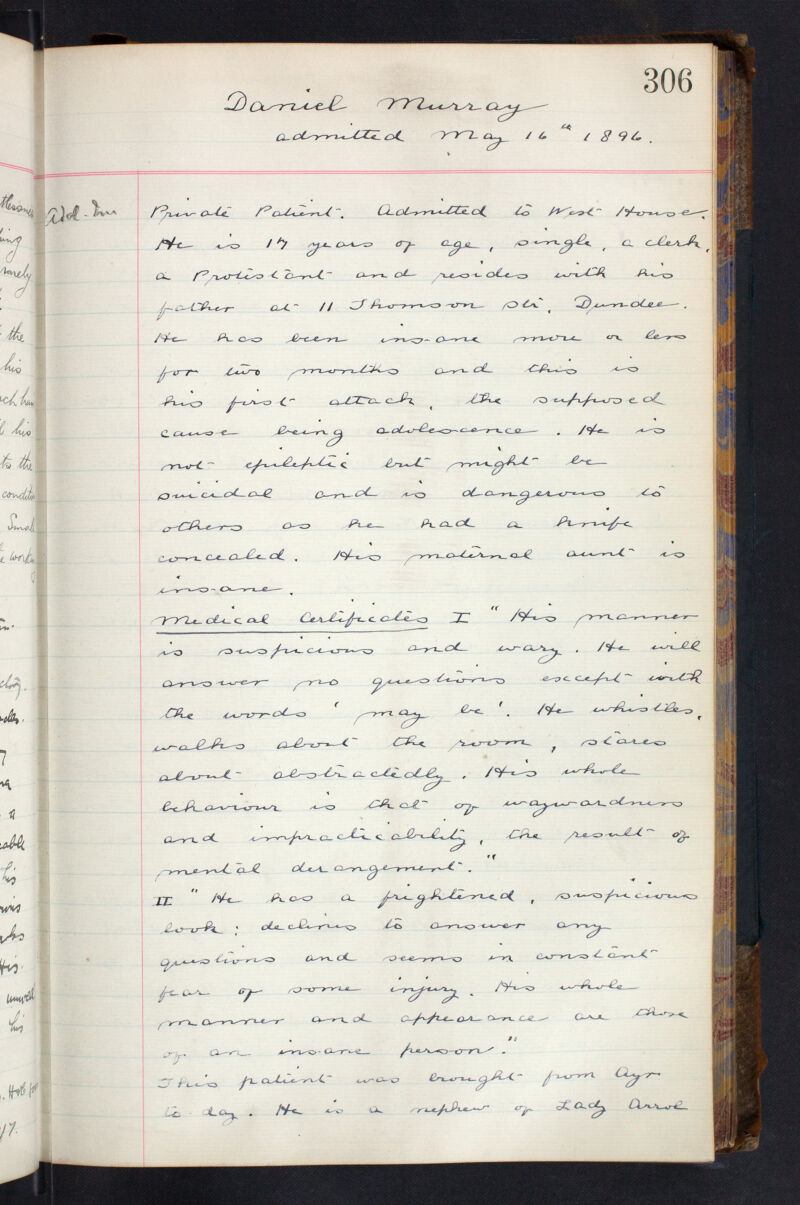 306
Daniel Murray
admitted May 16th 1896.
Adol. Ins
Private Patient. Admitted to West House.
He is 17 years of age, single, a clerk,
a Protestant and resides with his
father at 11 Thomson Str, Dundee.
He has been insane more or less
for two months and this is
his first attack, the supposed
cause being adolescence. He is
not epileptic but might be
suicidal and is dangerous to
others as he had a knife
concealed. His maternal aunt is
insane.
Medical Certificates I "His manner
is suspicious and wary. He will
answer no questions except with
the words 'may be'. He whistles,
walks about the room, stares
about abstractedly. His whole
behaviour is that of waywardness
and impracticability, the result of
mental derangement."
II "He has a frightened, suspicious
look; declines to answer any
questions and seems in constant
fear of some injury. His whole
manner and appearance are those
of an insane person."
This patient was brought from Ayr
to-day. He is a nephew of Lady Arrol
the
his
his
to the
a
his
His
his